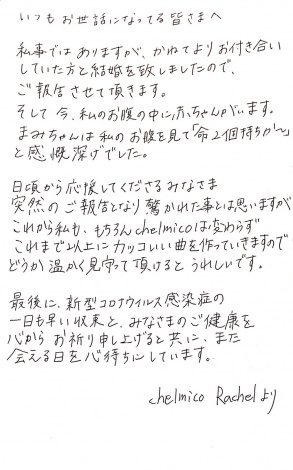 いつもお世話になってる皆さまへ
私事ではありますが、かねてよりお付き合い
していた方と結婚を致しましたので、
ご報告させて頂きます。
そして今、私のお腹の中に赤ちゃんがいます。
まみちゃんは私のお腹を見て「命2個持ちか〜」
と感慨深げでした。
日頃から応援してくださるみなさま
突然のご報告となり驚かれた事とは思いますが
これから私も、もちろんchelmicoは変わらず
これまで以上にカッコいい曲を作っていきますので
どうか温かく見守って頂けるとうれしいです。
最後に、新型コロナウイルス感染症の
一日も早い収束と、みなさまのご健康を
心からお祈り申し上げると共に、また
会える日を心待ちにしています。
chelmico Rachelより